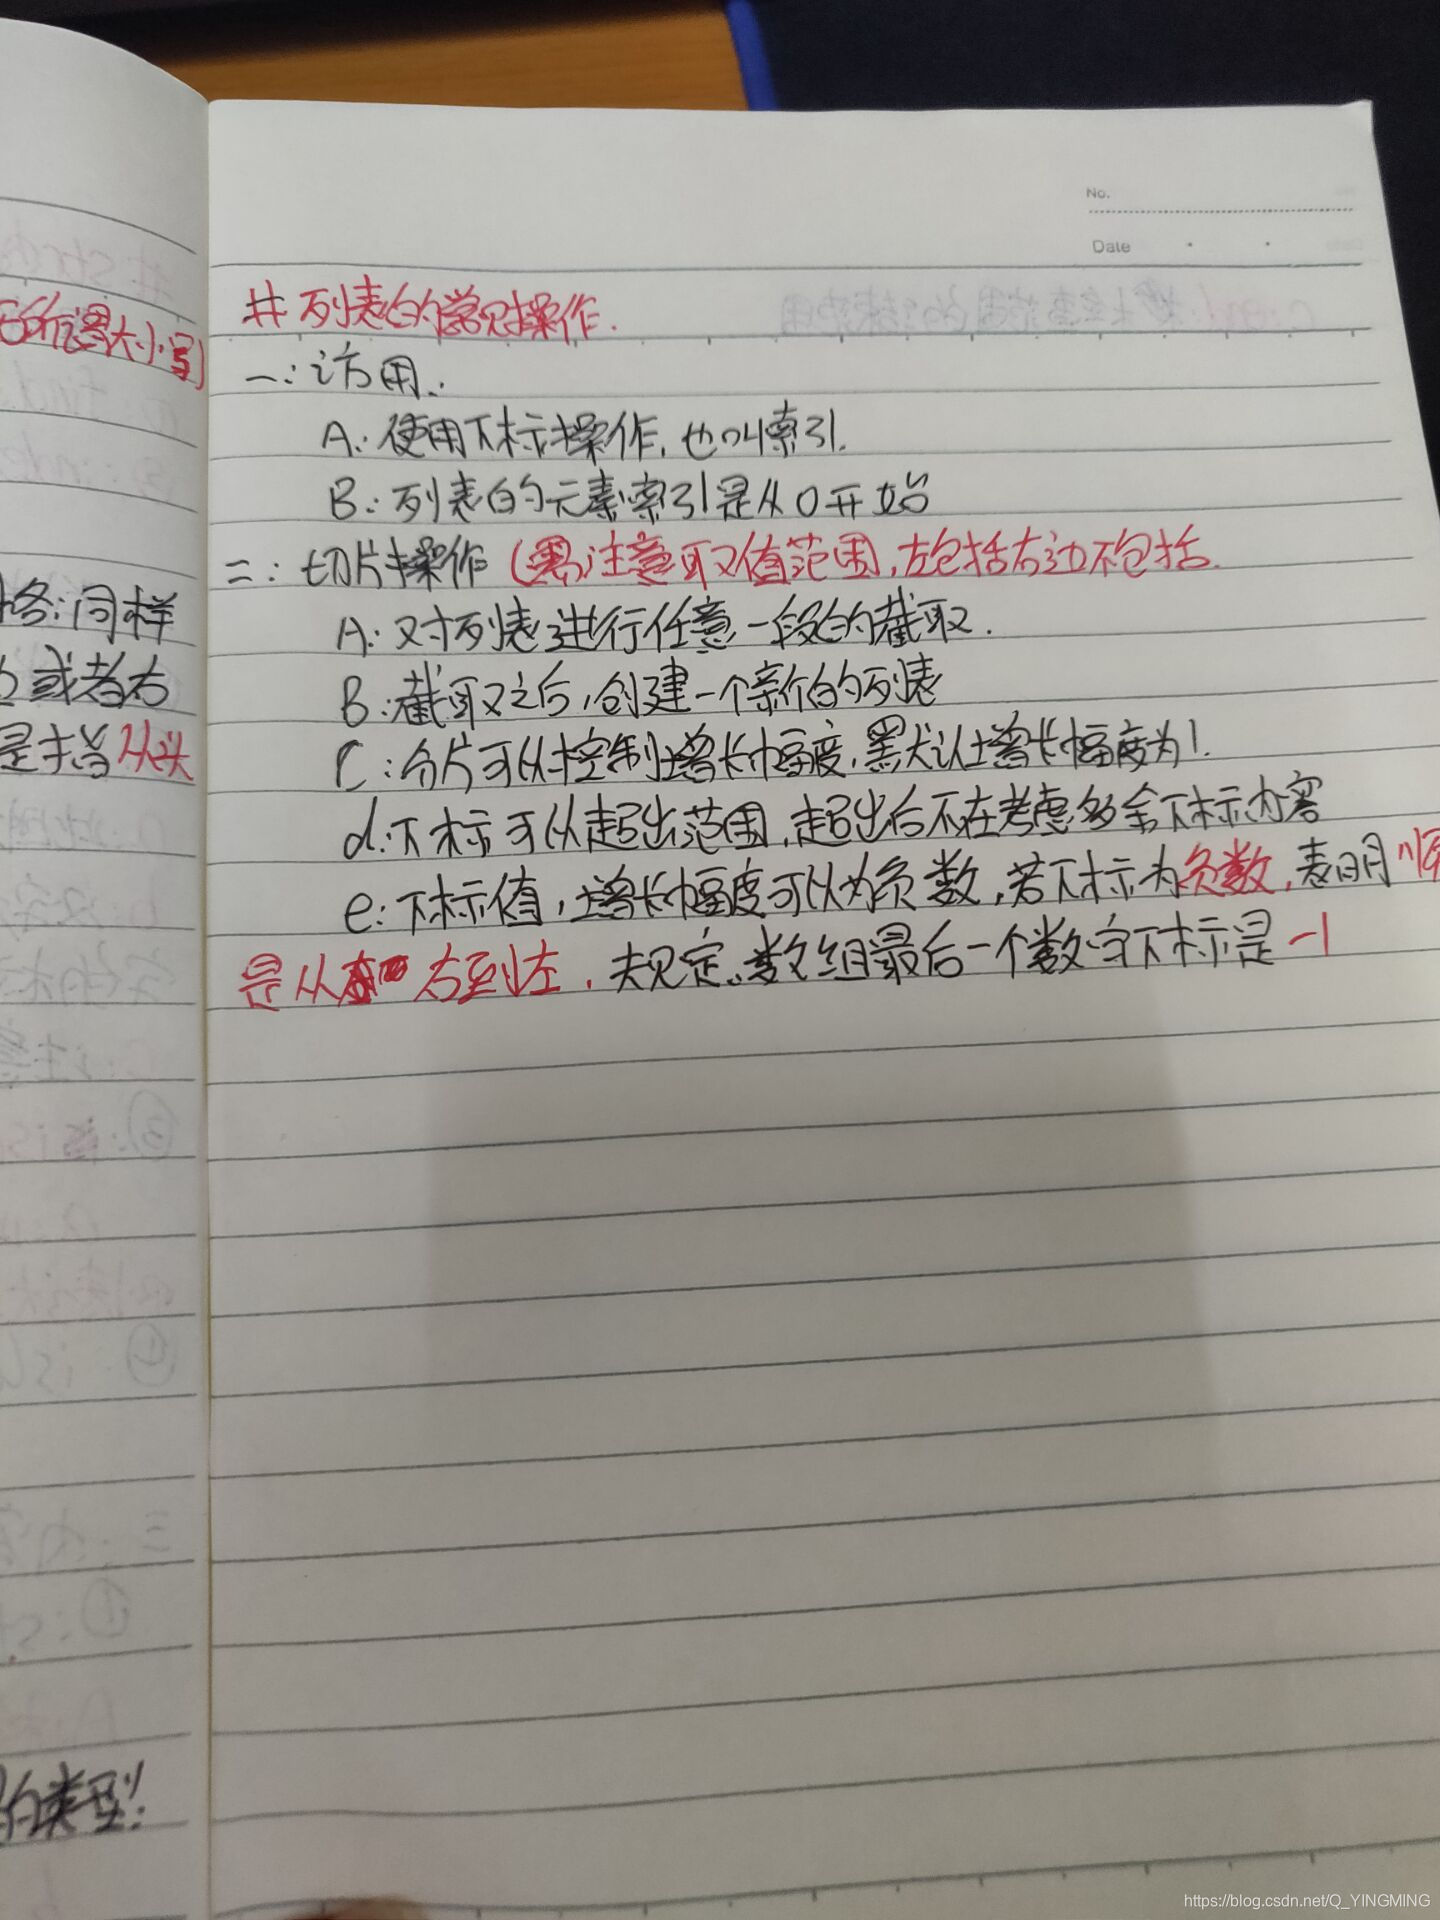 No.
Date
# 列表的常见操作.
一: 访用.:
A: 使用下标操作, 也叫索引.
B: 列表的元素索引是从0开始
二: 切片操作 (注意取值范围, 左包括右边不包括.
A: 对列表进行任意一段的截取.
B: 截取之后, 创建一个新的列表
C: 分片可以控制增长幅度, 默认增长幅度为1.
d: 下标可以超出范围, 超出后不在考虑多余下标内容
e: 下标值, 增长幅度可以为负数, 若下标为负数, 表明顺
是从 右到左, 夫规定. 数组最后一个数字下标是 -1
大小写)
格: 同样
或者右
是指从头
的类型:
https://blog.csdn.net/Q_YINGMING